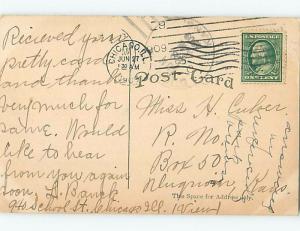 Recieved your
pretty card
and thanks
very much for
same. Would
like to hear
from you again
soon, L. Banck
School St. Chicago Ill. (View)
CHICAGO, ILL.
JUN 27
POST CARD
Miss H. Culver
R. No.
Box 50
Kans.
The Space for Address only.